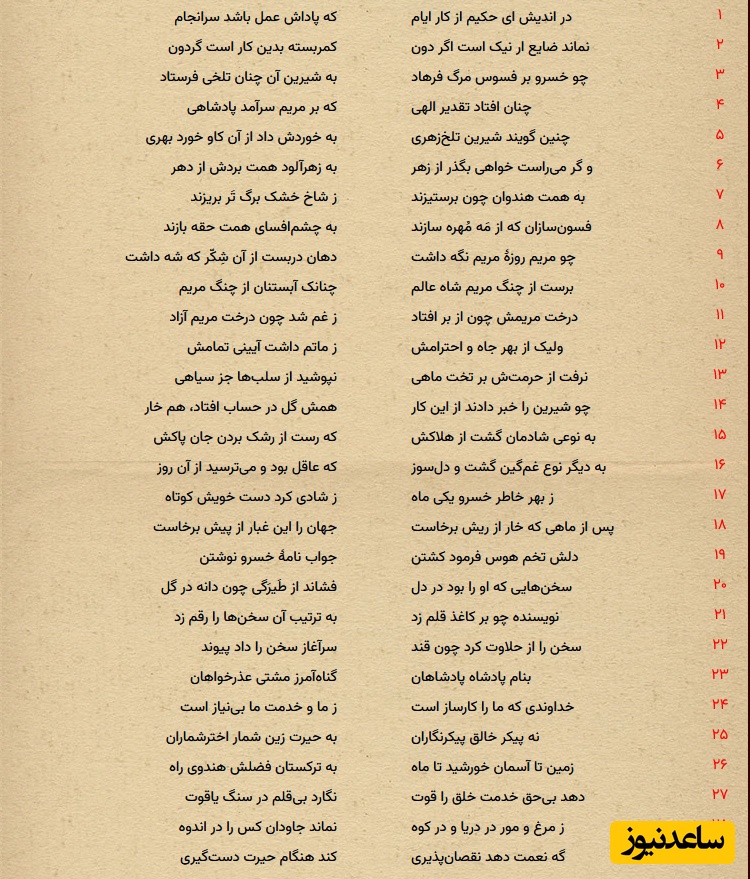 ۱ در اندیش ای حکیم از کار ایام که پاداش عمل باشد سرانجام
۲ نماند ضایع ار نیک است اگر دون کمربسته بدین کار است گردون
۳ چو خسرو بر فسوس مرگ فرهاد به شیرین آن چنان تلخی فرستاد
۴ چنان افتاد تقدیر الهی که بر مریم سرآمد پادشاهی
۵ چنین گویند شیرین تلخ‌زهری به خوردش داد از آن کاو خورد بهری
۶ و گر می‌راست خواهی بگذر از زهر به زهرآلود همت بردش از دهر
۷ به همت هندوان چون برستیزند ز شاخ خشک برگ تَر بریزند
۸ فسون‌سازان که از مَه مُهره سازند به چشم‌افسای همت حقه بازند
۹ چو مریم روزهٔ مریم نگه داشت دهان دربست از آن شِکّر که شه داشت
۱۰ برست از چنگ مریم شاه عالم چنانک آبستنان از چنگ مریم
۱۱ درخت مریمش چون از بر افتاد ز غم شد چون درخت مریم آزاد
۱۲ ولیک از بهر جاه و احترامش ز ماتم داشت آیینی تمامش
۱۳ نرفت از حرمتش بر تخت ماهی نپوشید از سلب‌ها جز سیاهی
۱۴ چو شیرین را خبر دادند از این کار همش گل در حساب افتاد، هم خار
۱۵ به نوعی شادمان گشت از هلاکش که رست از رشک بردن جان پاکش
۱۶ به دیگر نوع غم‌گین گشت و دل‌سوز که عاقل بود و می‌ترسید از آن روز
۱۷ ز بهر خاطر خسرو یکی ماه ز شادی کرد دست خویش کوتاه
۱۸ پس از ماهی که خار از ریش برخاست جهان را این غبار از پیش برخاست
۱۹ دلش تخم هوس فرمود کشتن جواب نامهٔ خسرو نوشتن
۲۰ سخن‌هایی که او را بود در دل فشاند از طَیرَگی چون دانه در گل
۲۱ نویسنده چو بر کاغذ قلم زد به ترتیب آن سخن‌ها را رقم زد
۲۲ سخن را از حلاوت کرد چون قند سرآغاز سخن را داد پیوند
۲۳ بنام پادشاه پادشاهان گناه‌آمرز مشتی عذرخواهان
۲۴ خداوندی که ما را کارساز است ز ما و خدمت ما بی‌نیاز است
۲۵ نه پیکر خالق پیکرنگاران به حیرت زین شمار اخترشماران
۲۶ زمین تا آسمان خورشید تا ماه به ترکستان فضلش هندوی راه
۲۷ دهد بی‌حق خدمت خلق را قوت نگارد بی‌قلم در سنگ یاقوت
ز مرغ و مور در دریا و در کوه نماند جاودان کس را در اندوه
گه نعمت دهد نقصان‌پذیری کند هنگام حیرت دست‌گیری
ساعدنیوز